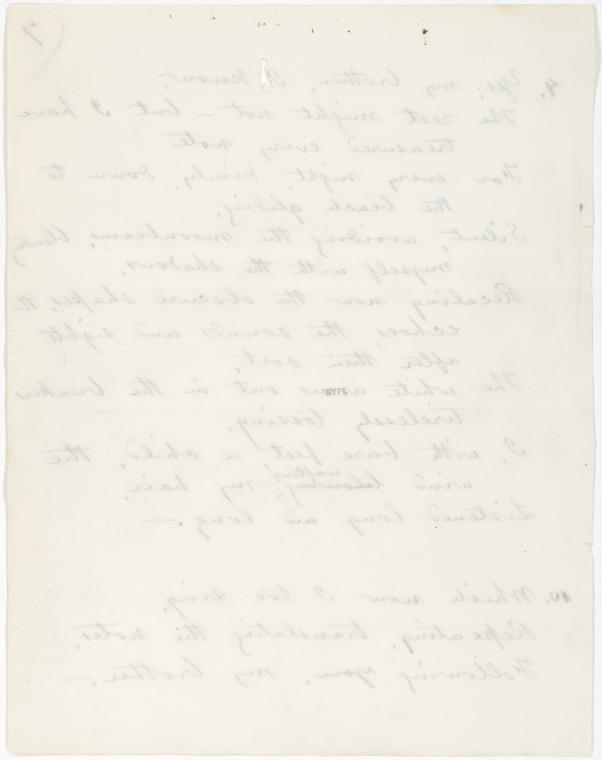 7
9. Yes, my brother, I know,
The rest might not — but I have
treasured every note
For every night, dimly, down to
the beach gliding,
Silent, avoiding the moonbeams, blending
myself with the shadows,
Recaling now the obscure shapes, the
echoes, the sounds and sights
after their sort,
The white arms out in the breakers
tirelessly tossing,
I, with bare feet, a child, the
wind wafting my hair,
Listened long and long —
NYPL
10. Which now I too sing,
Repeating, translating the notes,
Following you, my brother. —